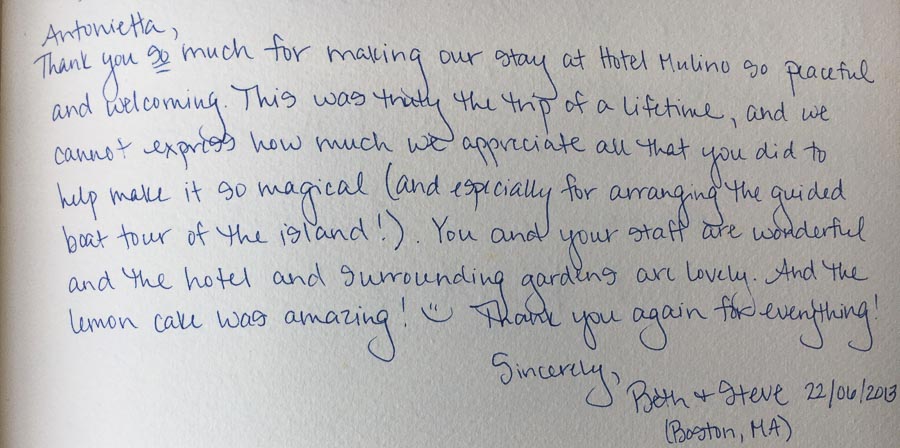 Antonietta,
Thank you so much for making our stay at Hotel Mulino so peaceful
and welcoming. This was truly the trip of a lifetime, and we
cannot express how much we appreciate all that you did to
help make it so magical (and especially for arranging the guided
boat tour of the island!). You and your staff are wonderful
and the hotel and surrounding gardens are lovely. And the
lemon cake was amazing! :) Thank you again for everything!
Sincerely,
Beth + Steve 22/06/2013
(Boston, MA)